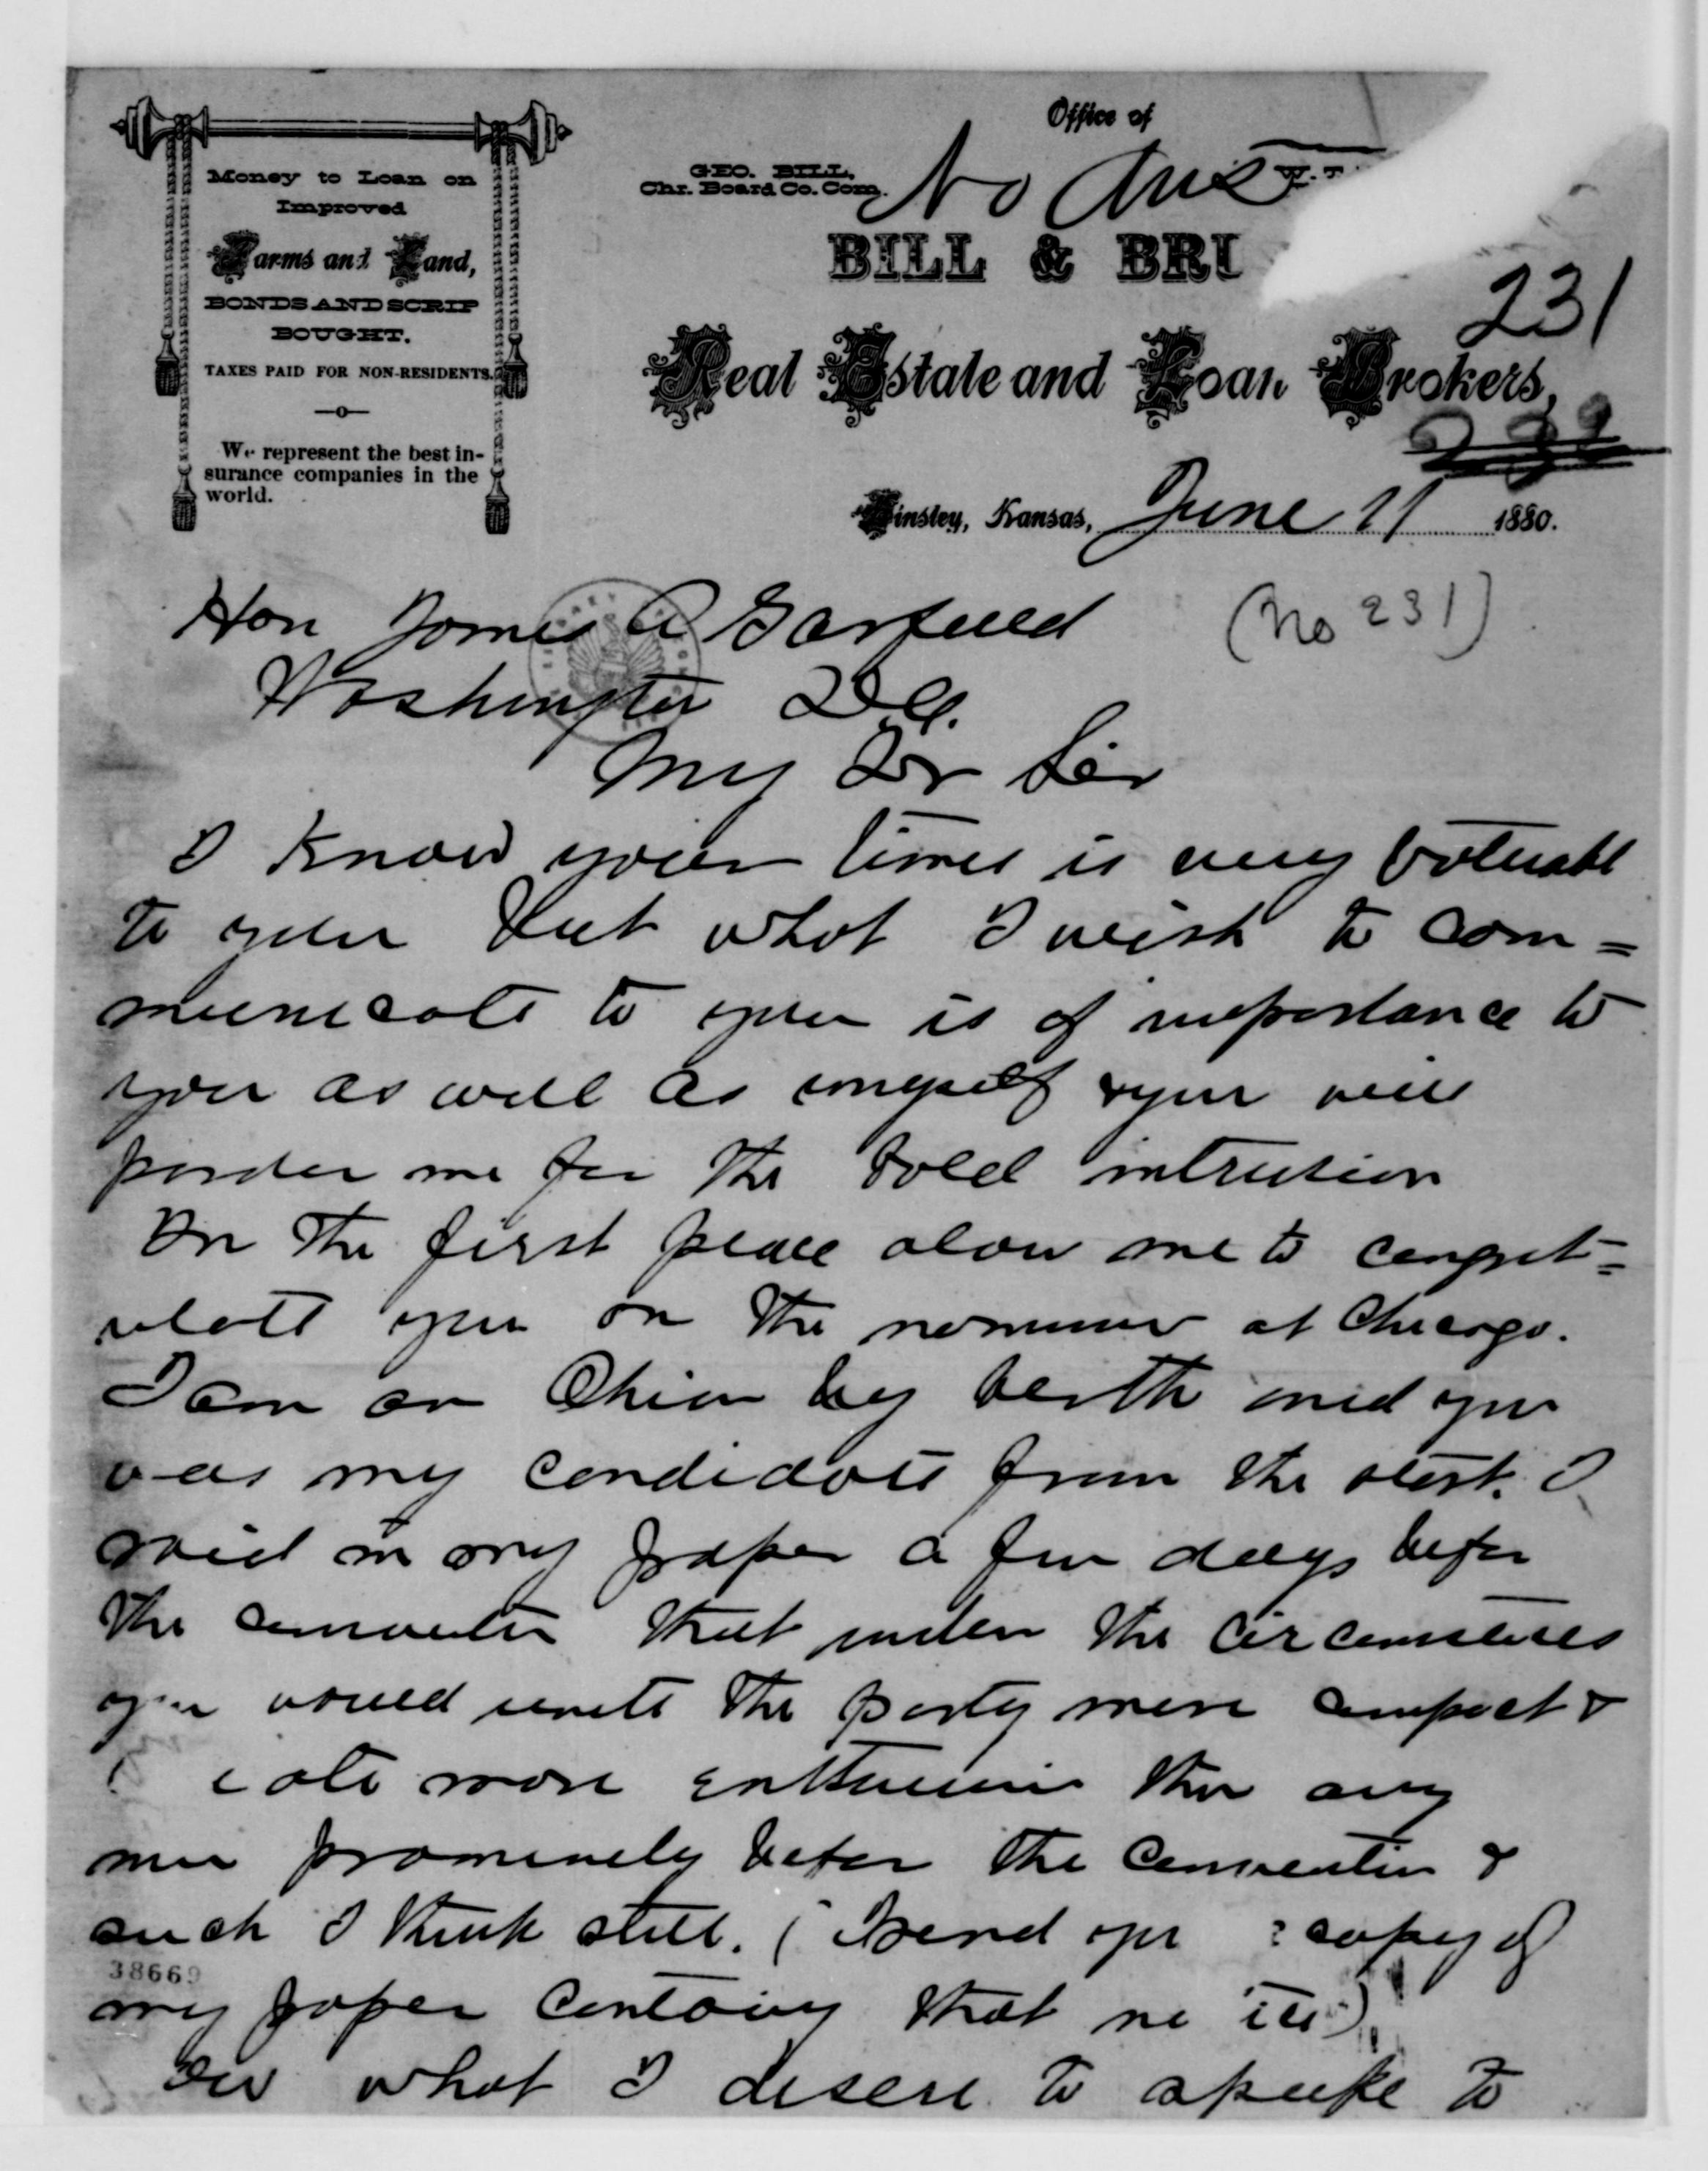 Money to Loan on
Improved
Farms and Land,
BONDS AND SCRIP
BOUGHT.
TAXES PAID FOR NON-RESIDENTS.
We represent the best in-
surance companies in the
world.
Office of
GEO. BILL,
Chr. Board Co. Com.
No Ans
BILL & BRI
231
Real Estate and Loan Brokers,
232
Kinsley, Kansas, June 11 1880.
Hon James A Garfield
(No 231)
Washington D.C.
My Dr Sir
I know your time is very valuabl
to you but what I wish to com=
municate to you is of importance to
you as well as myself & you will
pardon me for the bold intrusion
In the first place alow me to congrat=
ulate you on the at Chicago.
I am an Ohion by birth and you
was my candidate from the start. I
said in my paper a few days before
the convention that under the circumstances
you would unite the party more compact &
more enthusiasm than any
man prominely before the Convention &
such I think still. (I send you copy of
38669
my paper containg that
what I desere to speake to